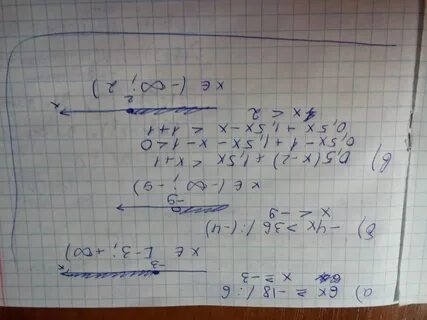 а) 6x ≥ -18 / : 6
x ≥ -3
-3 x
x ∈ [-3; +∞)
б) -4x > 36 / : (-4)
x < -9
-9
x ∈ (-∞; -9)
в) 0,5(x-2) + 1,5x < x+1
0,5x - 1 + 1,5x - x - 1 < 0
0,5x + 1,5x - x < 1+1
x < 2
2 x
x ∈ (-∞; 2)